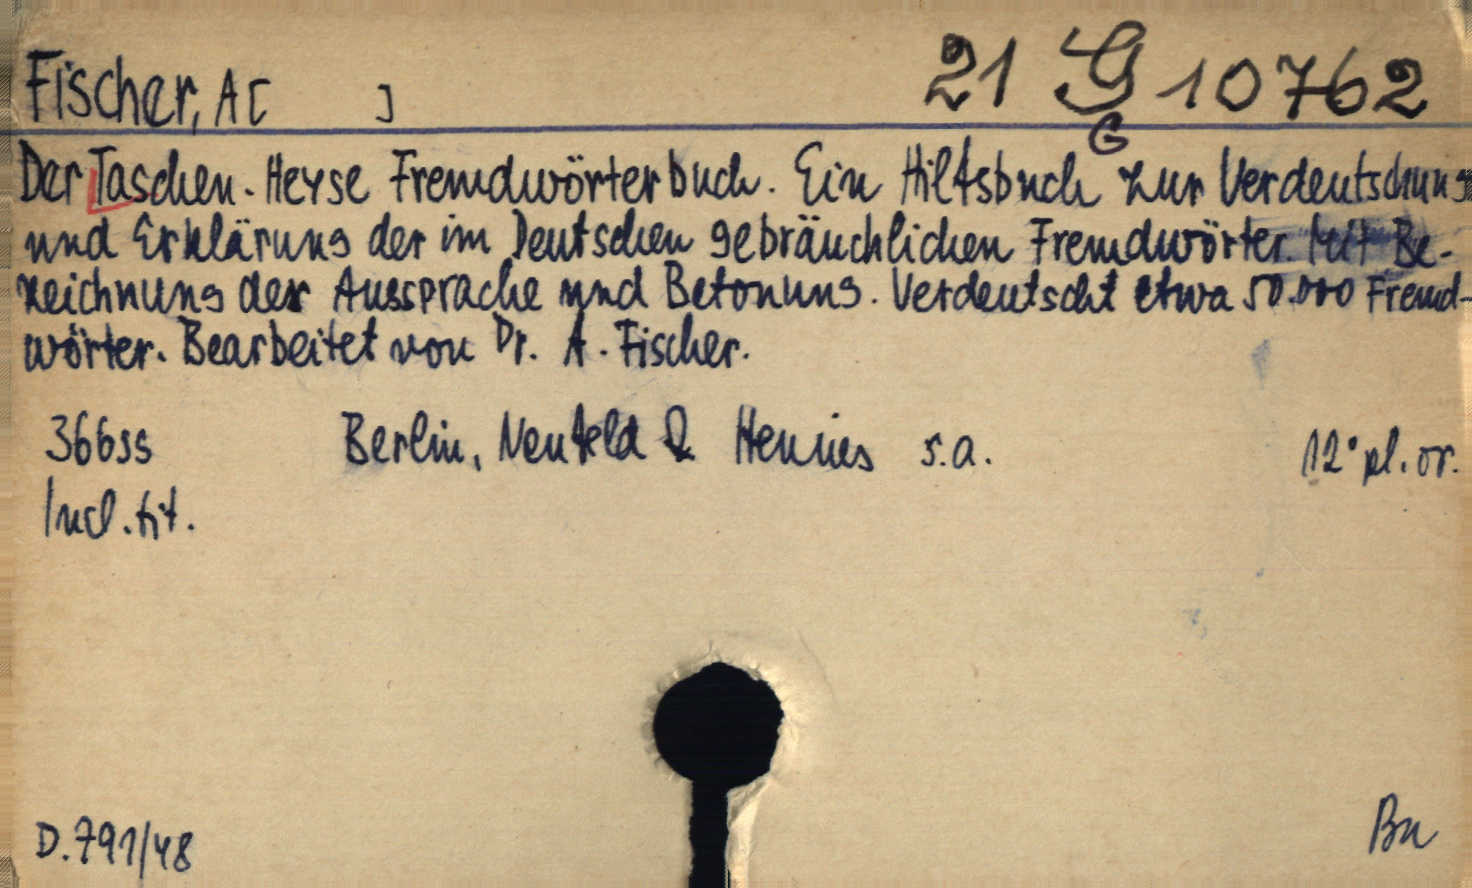 Fischer, A[ ] 21 G 10762
G
Der Taschen-Heyse Fremdwörterbuch. Ein Hilfsbuch zur Verdeutschung
und Erklärung der im Deutschen gebräuchlichen Fremdwörter. Mit Be-
zeichnung der Aussprache und Betonung. Verdeutscht etwa 50.000 Fremd-
wörter. Bearbeitet von Dr. A. Fischer.
366ss Berlin, Neufeld & Henius s.a. 12° pl. or.
Incl. tit.
D.791/48 Bu